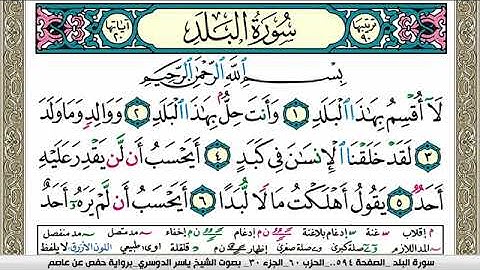 ترتيبها ٩٠ سُورَةُ الْبَلَدِ آياتها ٢٠
بِسْمِ اللَّهِ الرَّحْمَٰنِ الرَّحِيمِ
لَآ أُقْسِمُ بِهَٰذَا الْبَلَدِ ١ وَأَنتَ حِلٌّۢ بِهَٰذَا الْبَلَدِ ٢ وَوَالِدٍ وَمَا وَلَدَ
٣ لَقَدْ خَلَقْنَا الْإِنسَٰنَ فِي كَبَدٍ ٤ أَيَحْسَبُ أَن لَّن يَقْدِرَ عَلَيْهِ
أَحَدٌ ٥ يَقُولُ أَهْلَكْتُ مَالًا لُّبَدًا ٦ أَيَحْسَبُ أَن لَّمْ يَرَهُۥٓ أَحَدٌ
م إقلاب غنة إدغام بلاغنة ن م إدغام ن م إخفاء مد متصل مد منفصل
المد اللازم صلة كبرى صلة صغرى إظهار ن م قلقلة اوى: طبيعي اللون الأزرق: لا يلفظ
سورة البلد _الصفحة ٥٩٤..الحزب ٦٠_الجزء ٣٠_ بصوت الشيخ ياسر الدوسري_برواية حفص عن عاصم